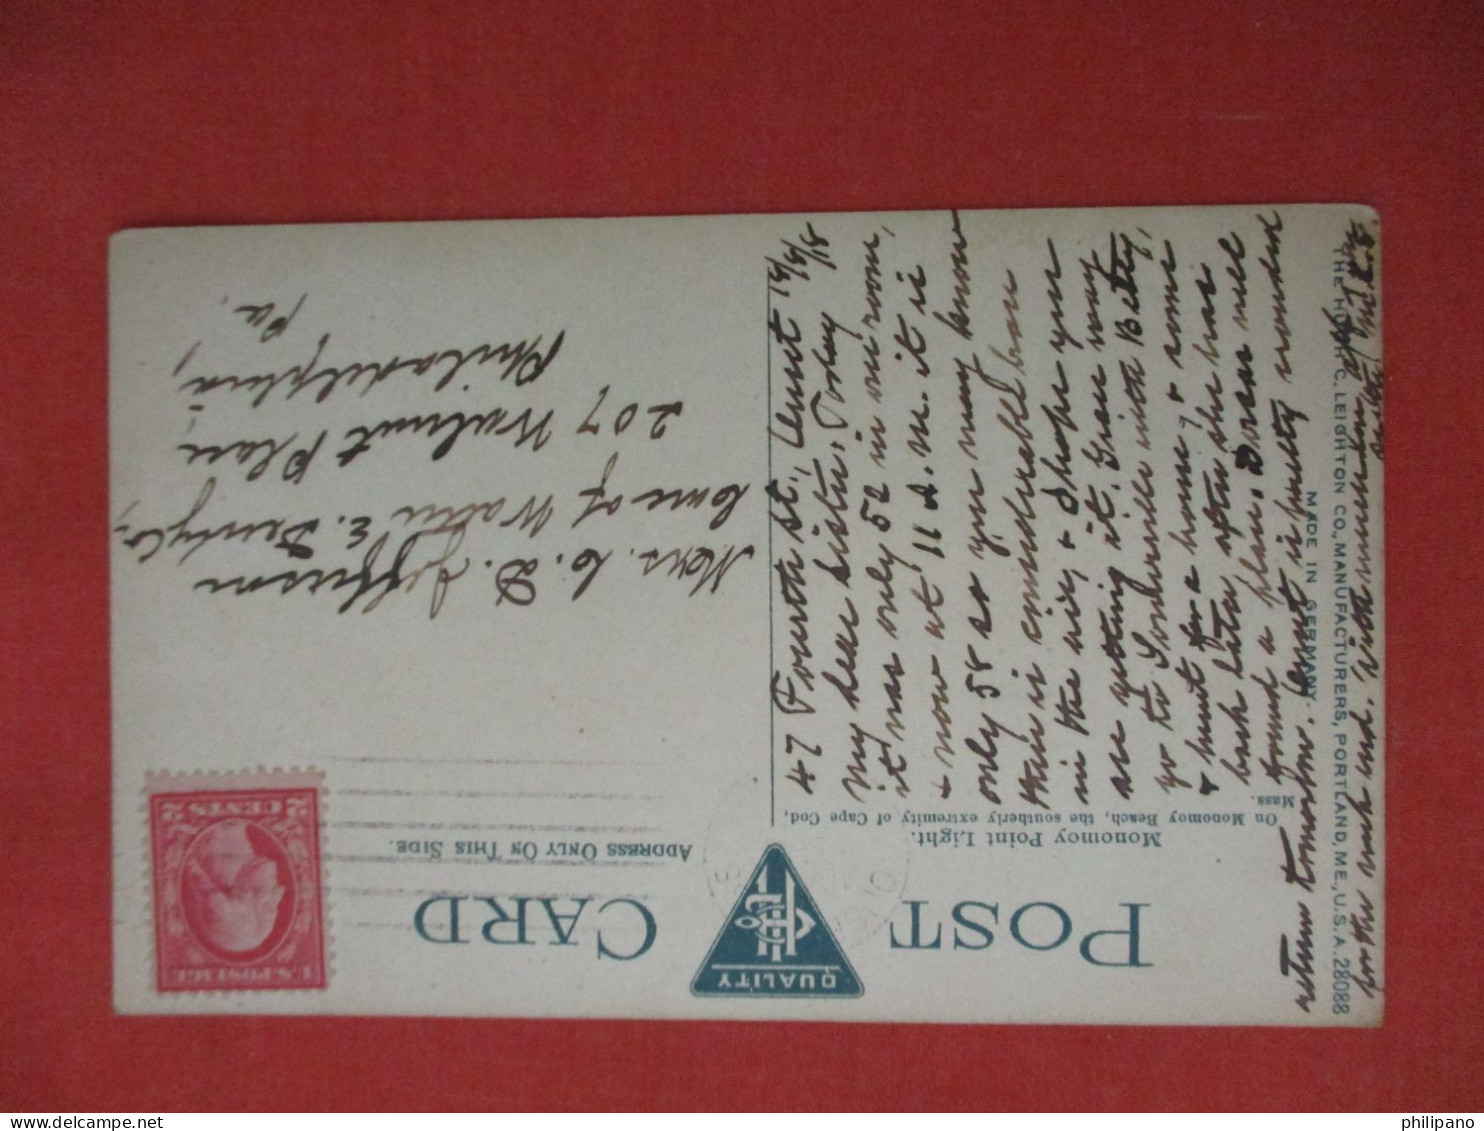 POST CARD
QUALITY
Monomoy Point Light.
On Monomoy Beach, the southerly extremity of Cape Cod,
Mass.
ADDRESS ONLY ON THIS SIDE.
U.S. POSTAGE
2 CENTS 2
Mrs. C. D. Jefferson
Care of Walter E.
207 Walnut Place,
Philadelphia,
Pa.
47 Fourth St.,
My dear Sister, Today
it was only 52 in our room,
& now at 11 A.M. it is
only 58 so you may know
there is considerable
in the air, & I hope you
are getting it. Grace may
go to with Betty,
& hunt for a house, & some
back later after she has
found a place. will
return tomorrow. is pretty
for the week end. With much love
THE HUGH C. LEIGHTON CO., MANUFACTURERS, PORTLAND, ME., U.S.A. 28088
MADE IN GERMANY.
philipano